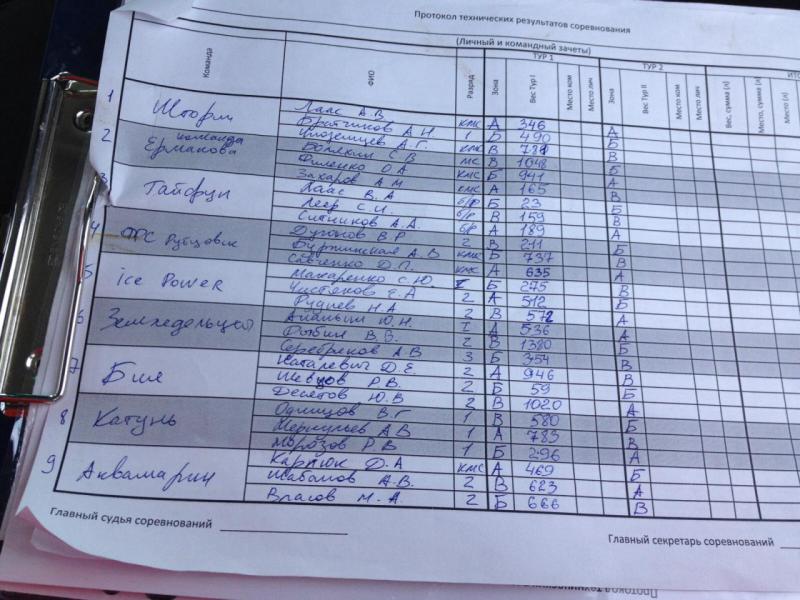 Протокол технических результатов соревнования
(Личный и командный зачеты)
Команда ФИО Разряд ТУР 1 Зона Вес Тур I Место ком Место лич ТУР 2 Зона Вес Тур II Место ком Место лич Вес, сумма (л) Место, сумма (л)
1 Шторм Лаас А.В кмс А 346 А
Братчиков А.Н. 1 Б 490 Б
Иноземцев А.Г. кмс В 781 В
2 команда Ермакова С.В мс В 1048 Б
Филенко О.А кмс Б 941 А
Захаров А.М кмс А 165 В
3 Тайфун Лаас В.А б/р Б 23 Б
Леер С.И. б/р В 159 В
Ситников А.А. б/р А 189 А
4 ФРС Рубцовск Дугонов В.Р 2 В 211 Б
Буржинская А.В кмс Б 737 В
Савченко Д.П. кмс А 635 А
5 ice Power Макаренко С.Ю. I Б 275 В
Чистяков Е.А 2 А 512 Б
Руднев Н.А 2 В 572 А
6 Ананьин Ю.Н. I А 536 А
В.В. 2 В 1380 Б
Серебряков А В 3 Б 354 В
7 Бия Наталевич Д.Е. 2 А 946 В
Шевцов Р.В. 2 Б 59 Б
Десятов Ю.В 2 В 1020 А
8 Катунь Одинцов В.Г 1 В 580 Б
Меркульев А В 1 А 783 В
Морозов Р.В 1 Б 296 А
9 Аквамарин Карпюк Д.А кмс А 469 Б
Шабалов А.В. 2 В 623 А
Власов М.А. 2 Б 666 В
Главный судья соревнований
Главный секретарь соревнований